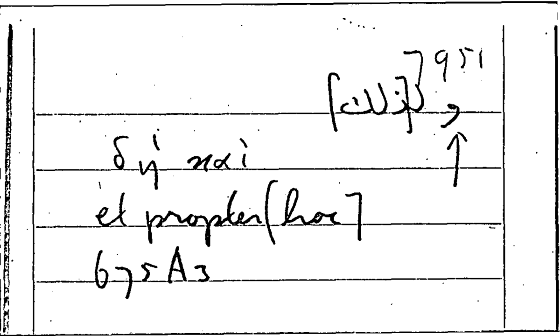 951
δή καὶ
et propter [hoc]
675A3